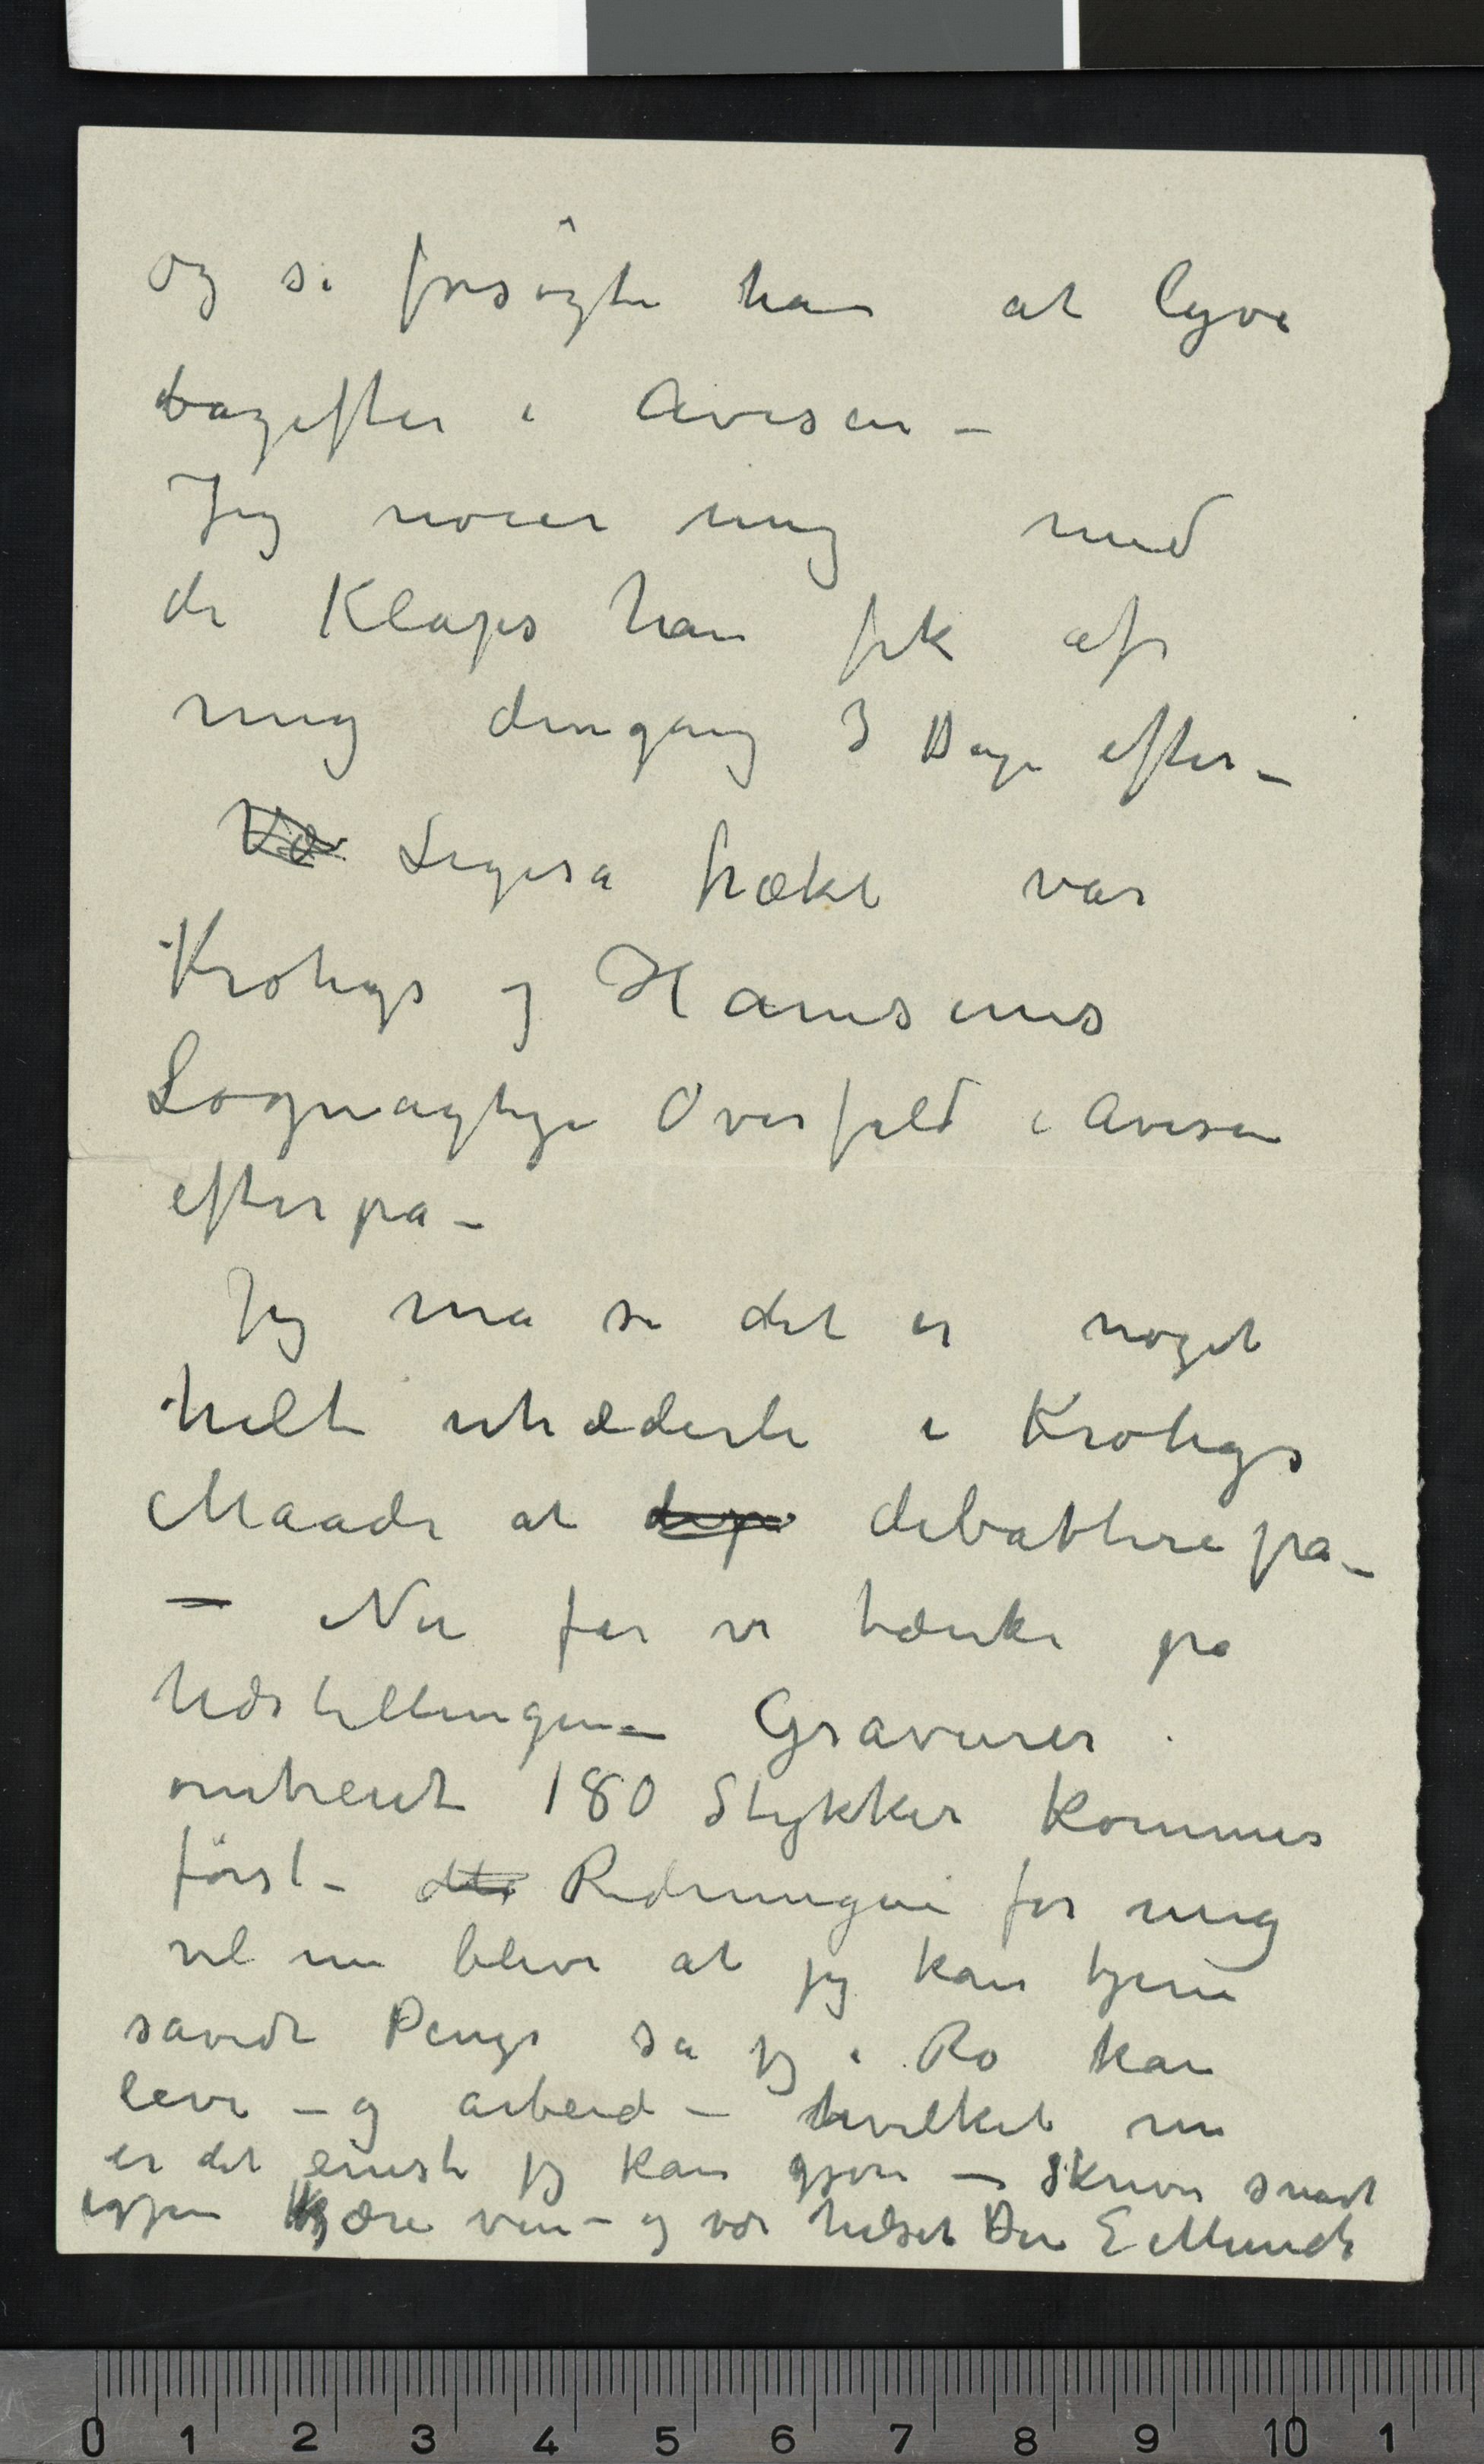 og så forsøgte han at lyve
bagefter i Avisen –
Jeg noier mig med
de Klaps han fik af
mig dengang 3 Dage efter –
Ligeså frækt var
Krohgs og Hansens
Løgnagtige Overfald i Avisen
efterpå –
Jeg må si det er noget
helt uhæderli i Krohgs
Maade at debattere på –
– Nu får vi tænke på
Udstillingen – Gravurer
omtrent 180 Stykker kommer
først – Redningen for mig
vil nu blive at jeg kan tjene
såvidt Penge så jeg i Ro kan
leve – og arbeide – hvilket nu
er det eneste jeg kan gjøre – Skriv snart
igjen Kjære ven – og vær hilset Din E Munch
0 1 2 3 4 5 6 7 8 9 10 1